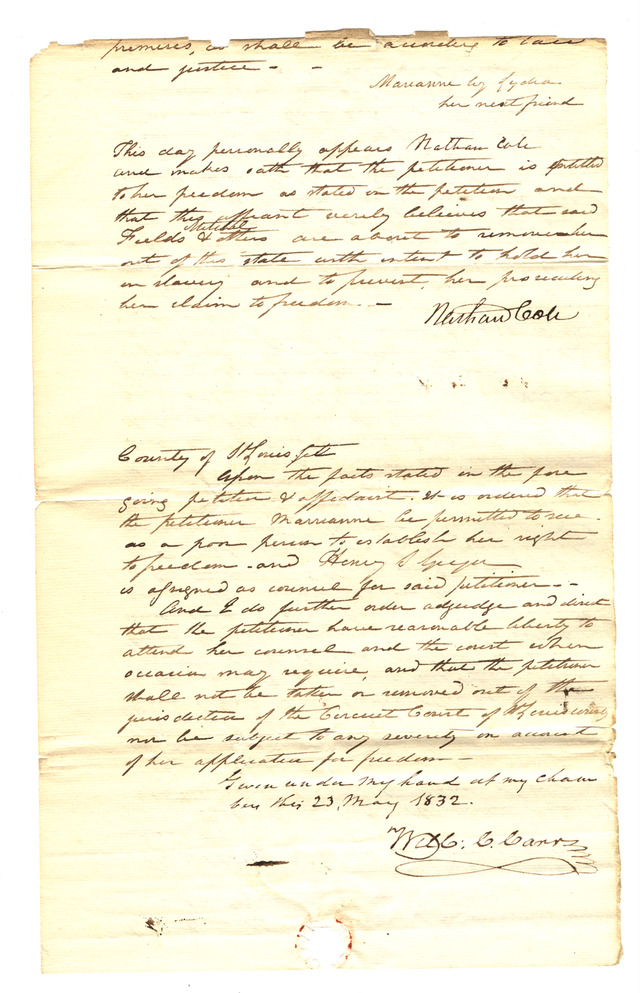 premises, as shall be according to law
and justice - -
Marianne by Lydia
her next friend
This day personally appears Nathan Cole
and makes oath that the petitioner is entitled
to her freedom as stated in the petition and
that this affiant verely believes that said
Mitchel
Fields & others are about to remove her
out of this state with intent to hold her
in slavery and to prevent her prosecuting
her claim to freedom. -
Nathan Cole
County of St Louis Sct
Upon the facts stated in the fore
going petition & affidavit. It is ordered that
the petitioner Marrianne be permitted to sue
as a poor person to establish her right
to freedom - and Henry S Geyer
is assigned as counsel for said petitioner - -
And I do further order adjudge and direct
that the petitioner have reasonable liberty to
attend her counsel and the court when
occasion may require, and that the petitioner
shall not be taken or removed out of the
jurisdiction of the Circuit Court of St Louis county
nor be subject to any severity on account
of her application for freedom -
Given under my hand at my cham
bers this 23, May 1832.
Wm C. Carr